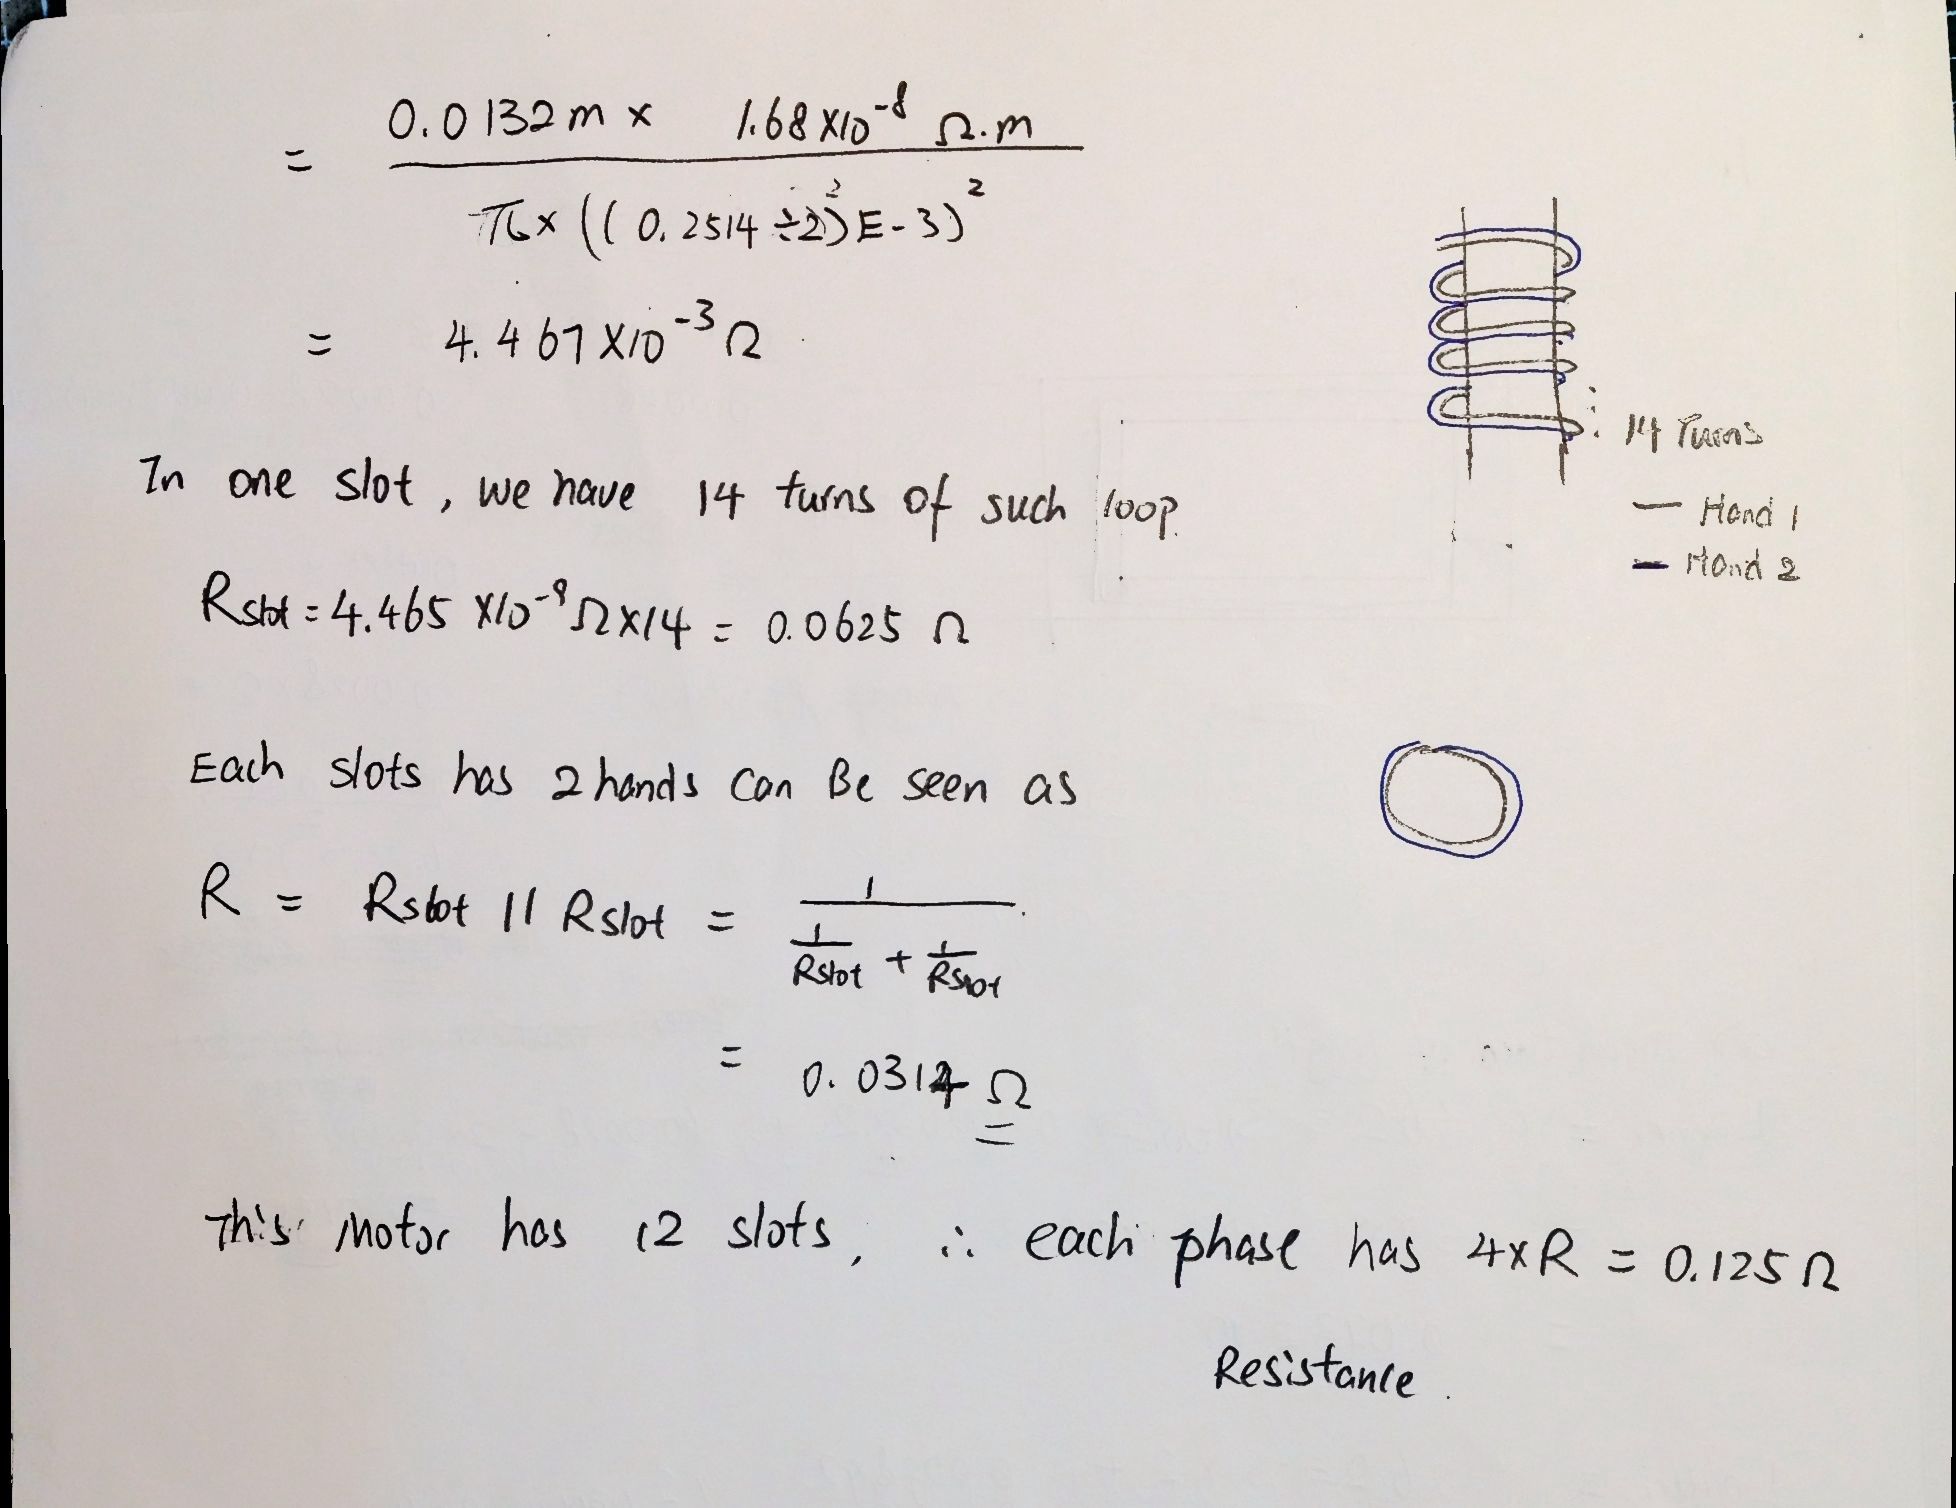 = 0.0132m × 1.68×10⁻⁸ Ω.m
π× ((0.2514÷2)²E-3)²
= 4.467×10⁻³Ω
14 Turns
In one slot, we have 14 turns of such loop.
— Hand 1
— Hand 2
Rslot = 4.465 ×10⁻⁹Ω×14 = 0.0625 Ω
Each slots has 2 hands can Be seen as
R = Rslot || Rslot = 1
1/Rslot + 1/Rslot
= 0.0314 Ω
This Motor has 12 slots, ∴ each phase has 4×R = 0.125Ω
Resistance.